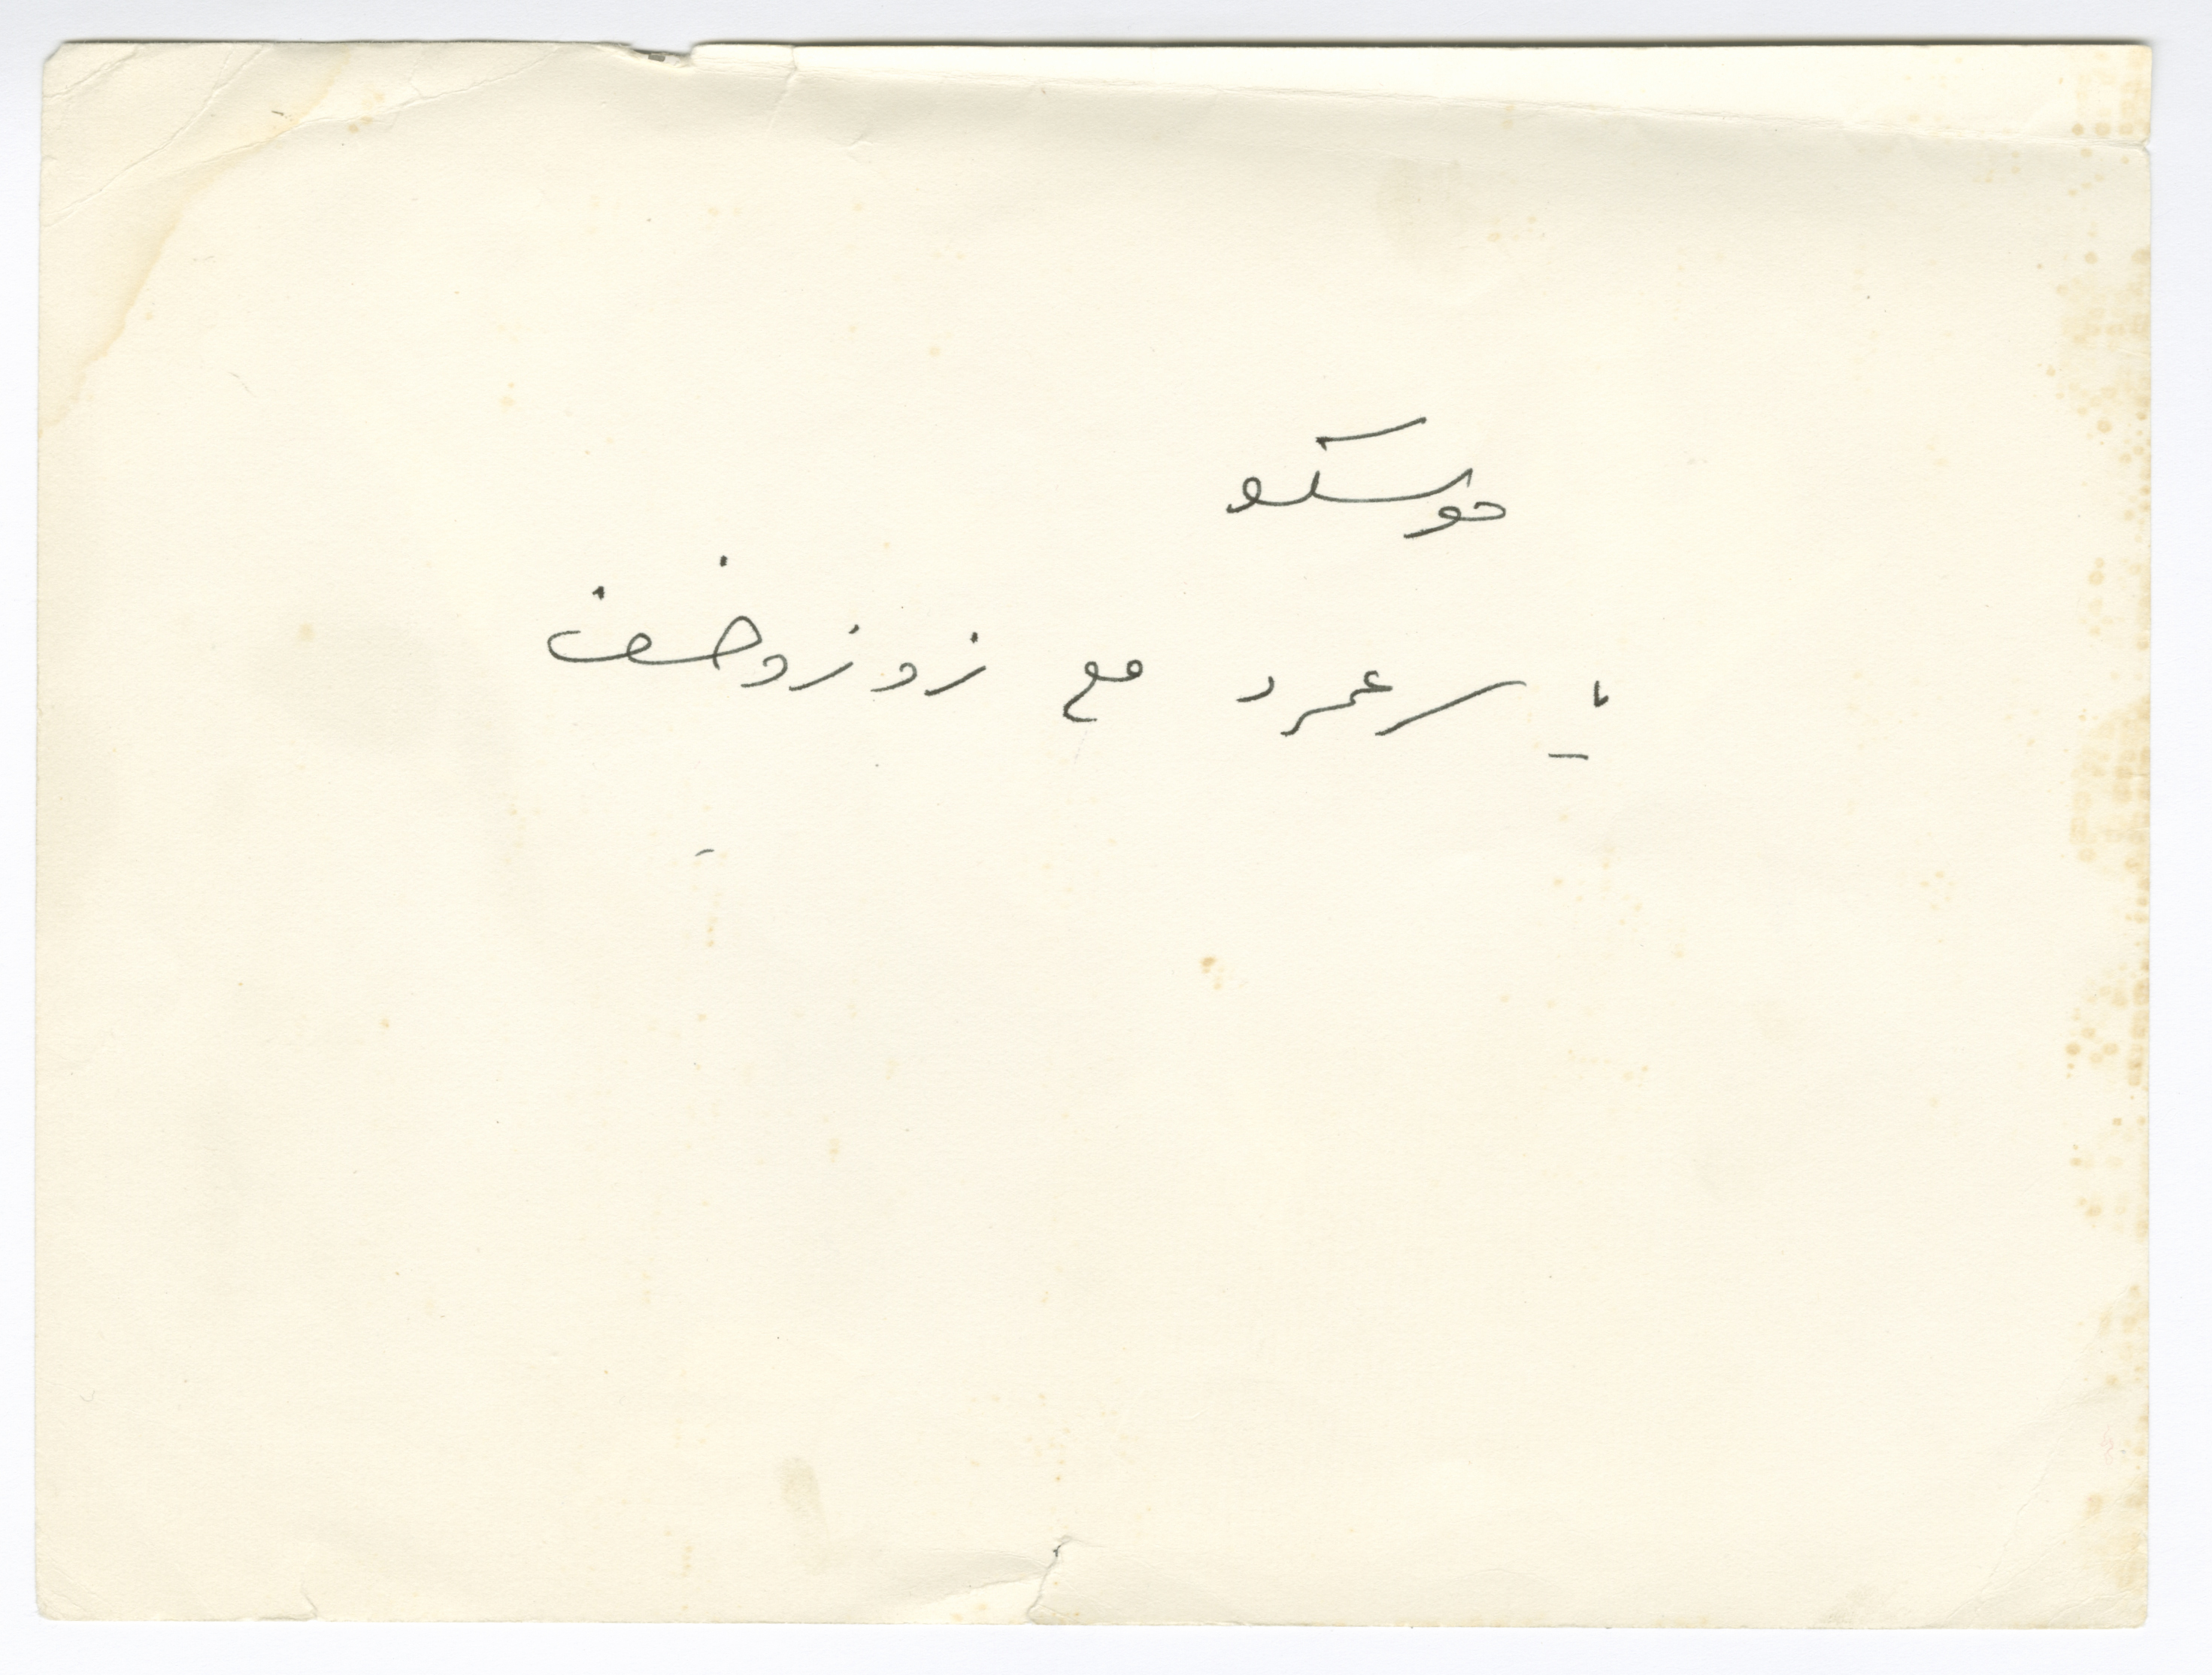 موسكو
ياسر عمرد مع زوزوخف